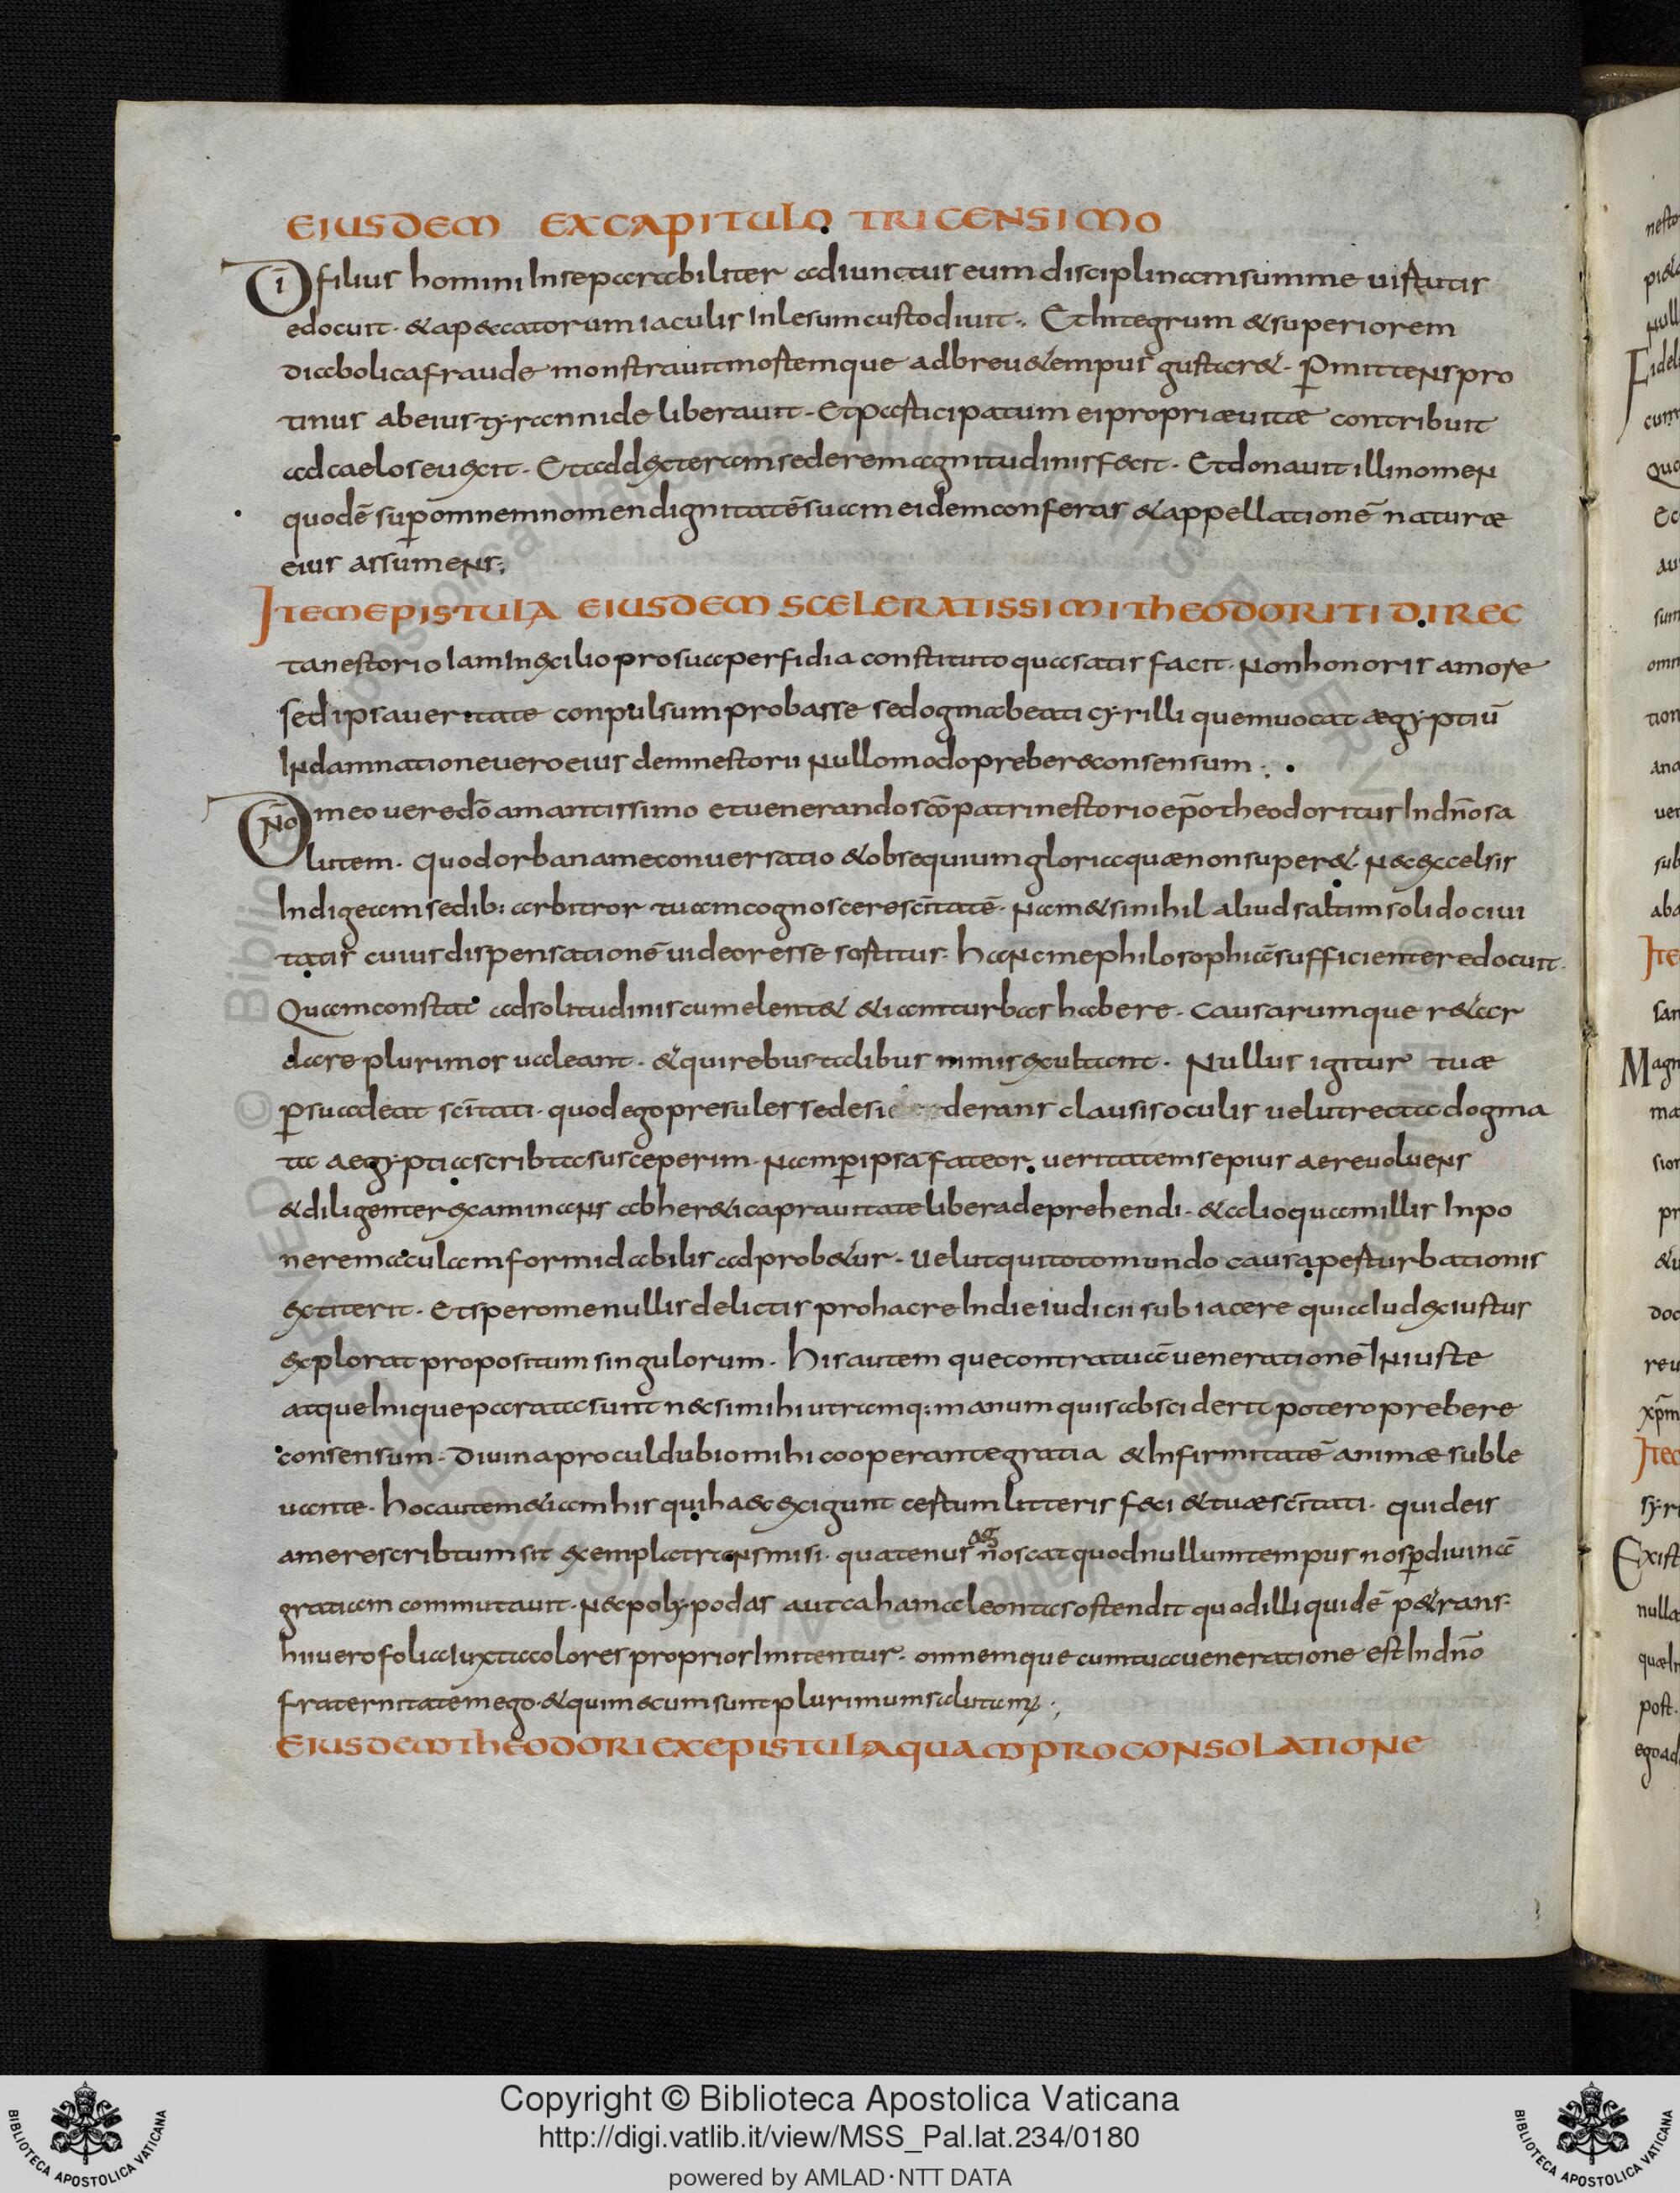 EIUSDEM EXCAPITULO TRICENSIMO
Dī filius homini Inseparabiliter adiunctus eum disciplinam summe uirtutis
edocuit · & a peccatorum iaculis Inlesum custodiuit ·, Et Integrum & superiorem
diabolica fraude monstrauit mortemque ad breue tempus gustar& · P̲mittens pro
tinus ab eius tyrannide liberauit · Et participatum ei propriæ uitæ contribuit
ad caelos euexit · Et ad dexteram sedere magnitudinis fecit · Et donauit illi nomen
quod ē sup̲ omnem nomen dignitatē suam eidem conferas & appellationē naturæ
eius assumens ;
ITEM EPISTULA EIUSDEM SCELERATISSIMI THEODORITI DIREC
ta nestorio Iam In exilio pro sua perfidia constituto qua satis facit · Non honoris amore
sed ipsa ueritate conpulsum probasse se dogma beati cyrilli quem uocat ægyptiū
In damnatione uero eiusdem nestorii Nullo modo preber& consensum ·, ·
Dn̄o meo uere dō amantissimo et uenerando scō patri nestorio ep̄o theodoritus In dn̄o sa
lutem · Quod urbana me conuersatio & obsequium gloria quæ non super& · N& excelsis
Indigeam sedib: arbitror tuam cognoscere scītatē · Nam & si nihil aliud saltim soli do ciui
tatis cuius dispensationē uideor esse sortitus · haNc me philosophiā sufficienter edocuit ·
Quam constat ad solitudinis cum elent& & iam turbas habere · Causarumque r&ar
dare plurimos ualeant · & qui rebus talibus nimis exultant · Nullus igitur tuæ
p̲suadeat scītati · quod ego presules sedes derans clausis oculis uelut recta dogma
ta aegyptia scribta susceperim · Nam p̲ ipsa fateor · ueritatem sepius a e reuoluens
& diligenter examinans ab her&ica prauitate libera deprehendi · & alioquam illis Inpo
nere maculam formidabilis adprob&ur · Uelut qui toto mundo causa perturbationis
extiterit · Et spero me nullis delictis pro hac re In die iudicii subiacere quia lud ex iustus
explorat propositum singulorum · His autem que contra tuā uenerationē Iniuste
atque Inique parata sunt n& si mihi utramq: manum quis absciderit potero prebere
consensum · Diuina procul dubio mihi cooperante gratia & Infirmitatē animæ suble
uante · hoc autem & iam his qui haec exigunt certum litteris feci & tuæ scītati · qui de is
a me rescribtum sit exempla transmisi · quatenus agnoscat quod nullum tempus nos p̲ diuinā
gratiam commutauit · Nec polypodas aut cahamaleontas ostendit quod illi quidē p&rans ·
hii uero folia Iuxta colores proprios Imitentur · omnemque cum tua ueneratione est In dn̄o
fraternitatem ego · & qui mecum sunt plurimum salutamꝰ ·,
EIUSDEM THEODORI EX EPISTULA QUAM PRO CONSOLATIONE
Copyright © Biblioteca Apostolica Vaticana
http://digi.vatlib.it/view/MSS_Pal.lat.234/0180
powered by AMLAD·NTT DATA
BIBLIOTECA APOSTOLICA VATICANA
BIBLIOTECA APOSTOLICA VATICANA